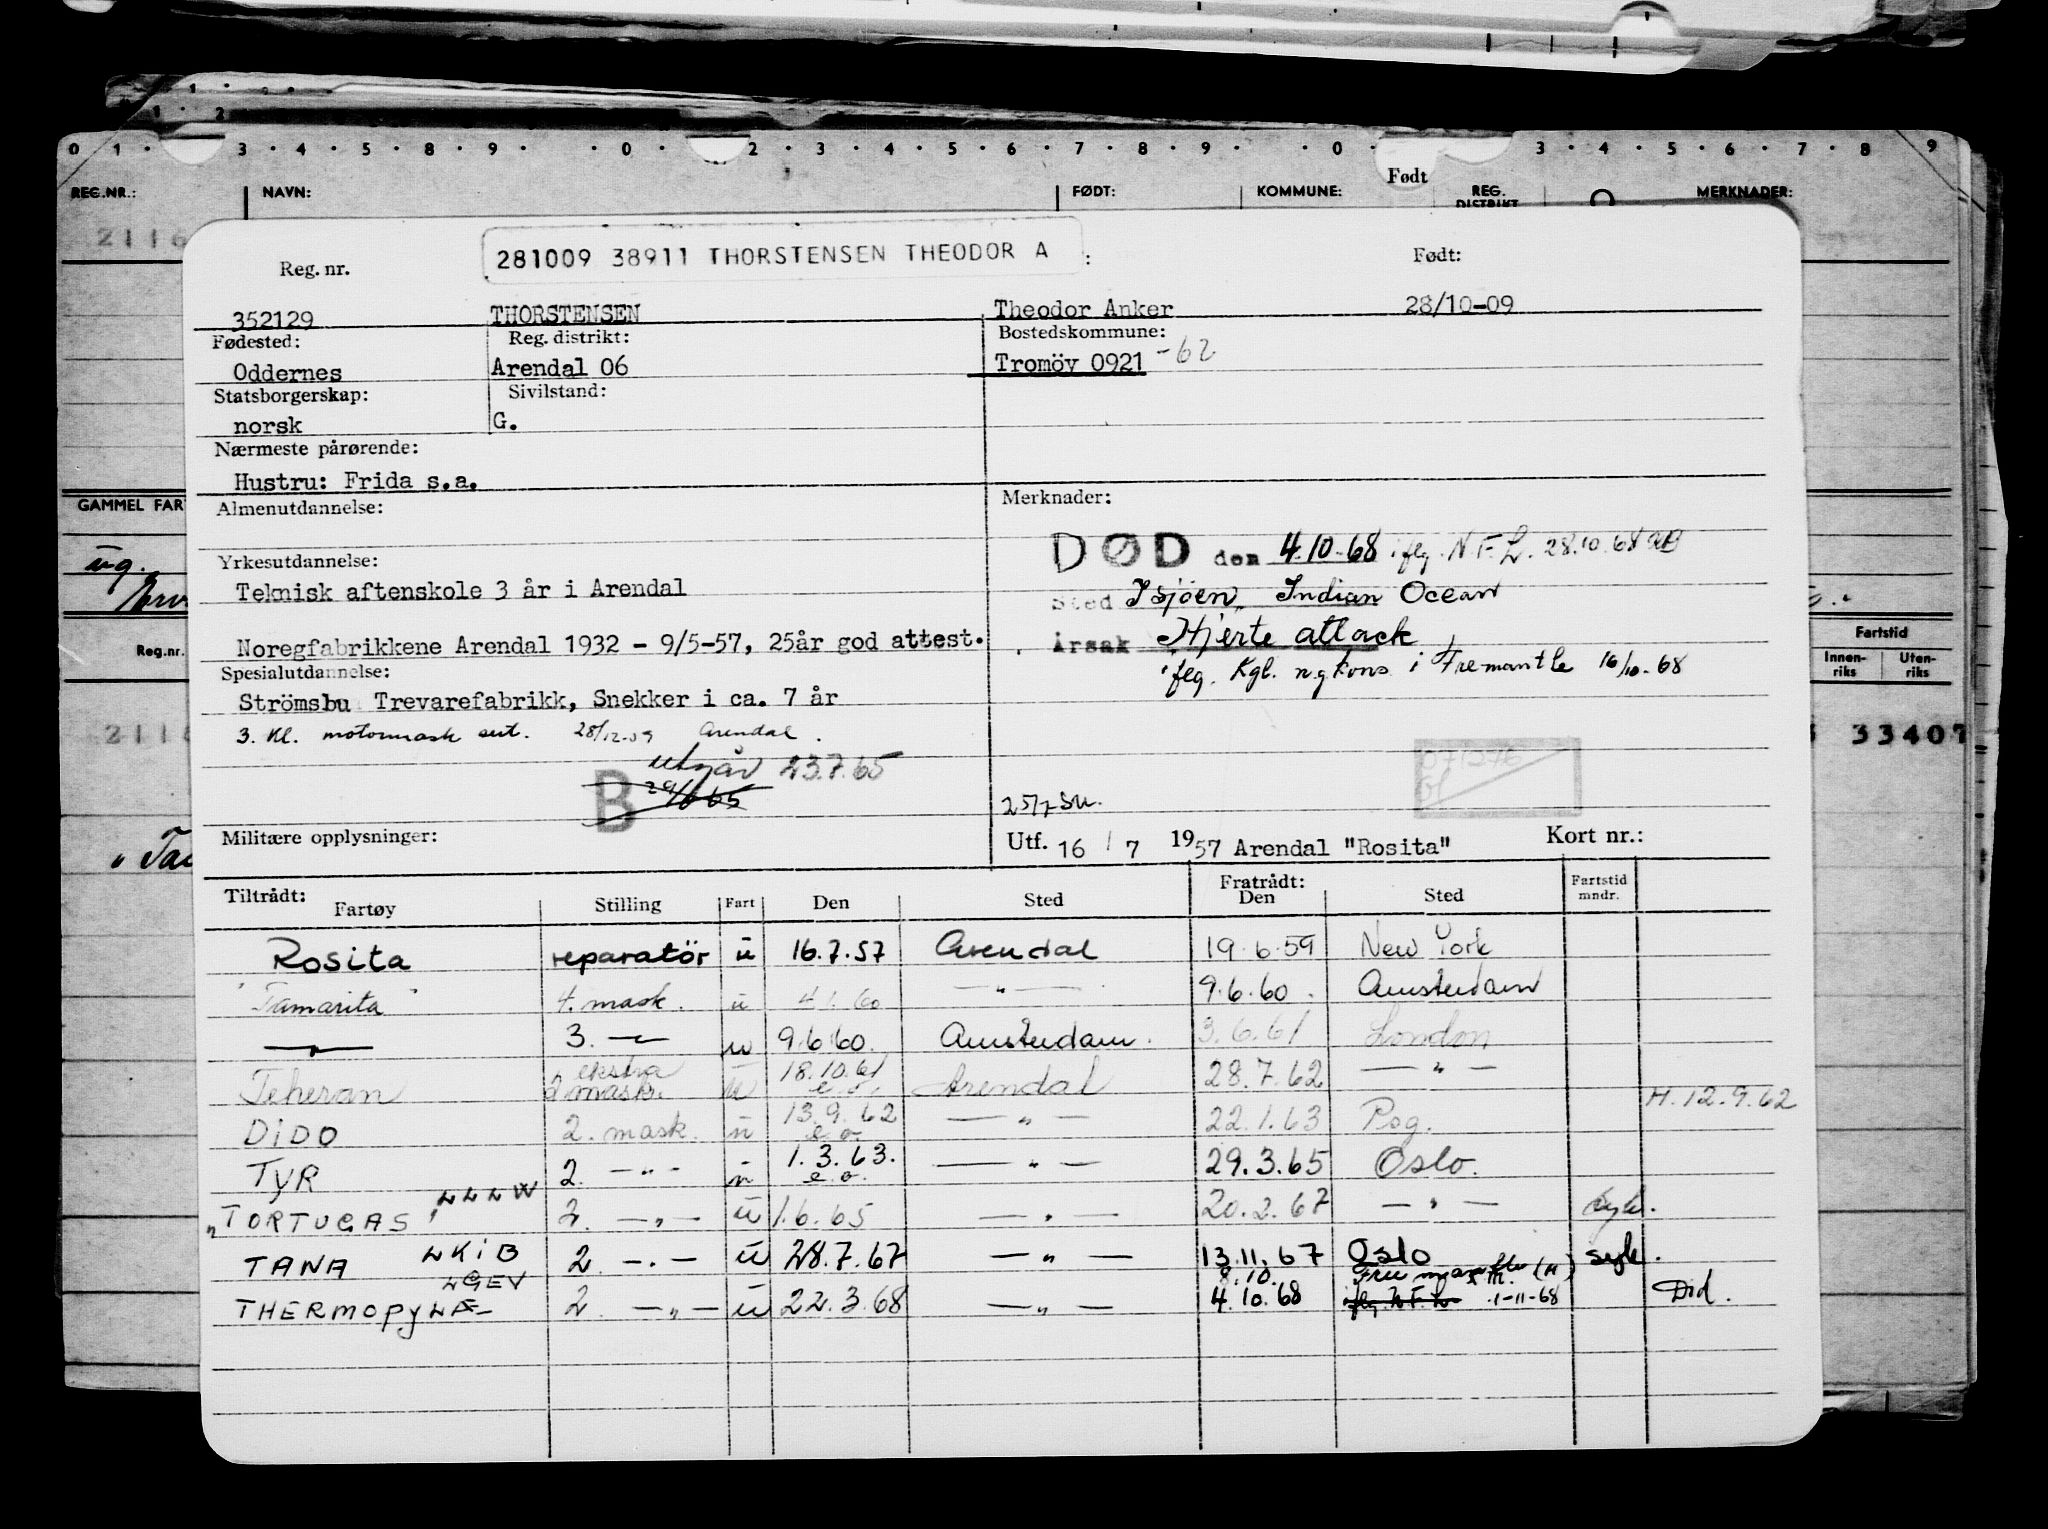 1 . 2
0 1 . 3 . 4 . 5 . 8 . 9 . . 0 . 2 . 3 . 4 . 6 . 7 . 8 . 9 . . 0 . 3 . 4 . 5 . 6 . 7 . 8 . 9
REG.NR.: NAVN: FØDT: KOMMUNE: Født REG. DISTRIKT MERKNADER:
2116
281009 38911 THORSTENSEN THEODOR A :
Reg. nr. Født:
352129 THORSTENSEN Theodor Anker 28/10-09
Fødested: Reg. distrikt: Bostedskommune:
Oddernes Arendal 06 Tromöy 0921 -62
Statsborgerskap: Sivilstand:
norsk G.
Nærmeste pårørende:
Hustru: Frida s.a.
Almenutdannelse: Merknader:
GAMMEL FAR
DØD den 4.10.68 iflg. N.F.L. 28.10.68
Yrkesutdannelse:
Teknisk aftenskole 3 år i Arendal
Sted I sjøen, Indian Ocean
Noregfabrikkene Arendal 1932 - 9/5-57, 25år god attest.
Årsak Hjerte attack
Reg.nr. Fartstid
Innen-riks Uten-riks
Spesialutdannelse:
iflg. Kgl. n. g.kons. i Fremantle 16/10-68
Strömsbu Trevarefabrikk, Snekker i ca. 7 år
3. kl. motormask sert. 28/12-59 Arendal.
211 33407
utgår 23.7.65
B
071276
25/7 Su.
Militære opplysninger: Utf. 16 / 7 1957 Arendal "Rosita" Kort nr.:
Tiltrådt: Fratrådt:
Fartøy Stilling Fart Den Sted Den Sted Fartstid mndr.
Rosita reparatör u 16.7.57 Arendal 19.6.59 New York
"Tamarita" 4. mask. u 4.1.60 — " — 9.6.60. Amsterdam
— " — 3. — u 9.6.60. Amsterdam. 3.6.61 London
Teheran ekstra 2 mask. u 18.10.61 e.o. Arendal 28.7.62 — " —
H. 12.9.62
DIDO 2. mask. u 13.9.62 e.o. — " — 22.1.63 Pog.
TYR 2. — " — u 1.3.63. e.o. — " — 29.3.65 Oslo.
"TORTUGAS" LLLW 2. — " — u 1.6.65 — " — 20.2.67 — " — syk.
TANA LKIB 2. — " — u 28.7.67 — " — 13.11.67 Oslo syk.
THERMOPYLÆ LGEV 2. — " — u 22.3.68 — " — 8.10. 4.10.68 Freemantle (H) iflg. N.F.L. 1-11-68 Död.